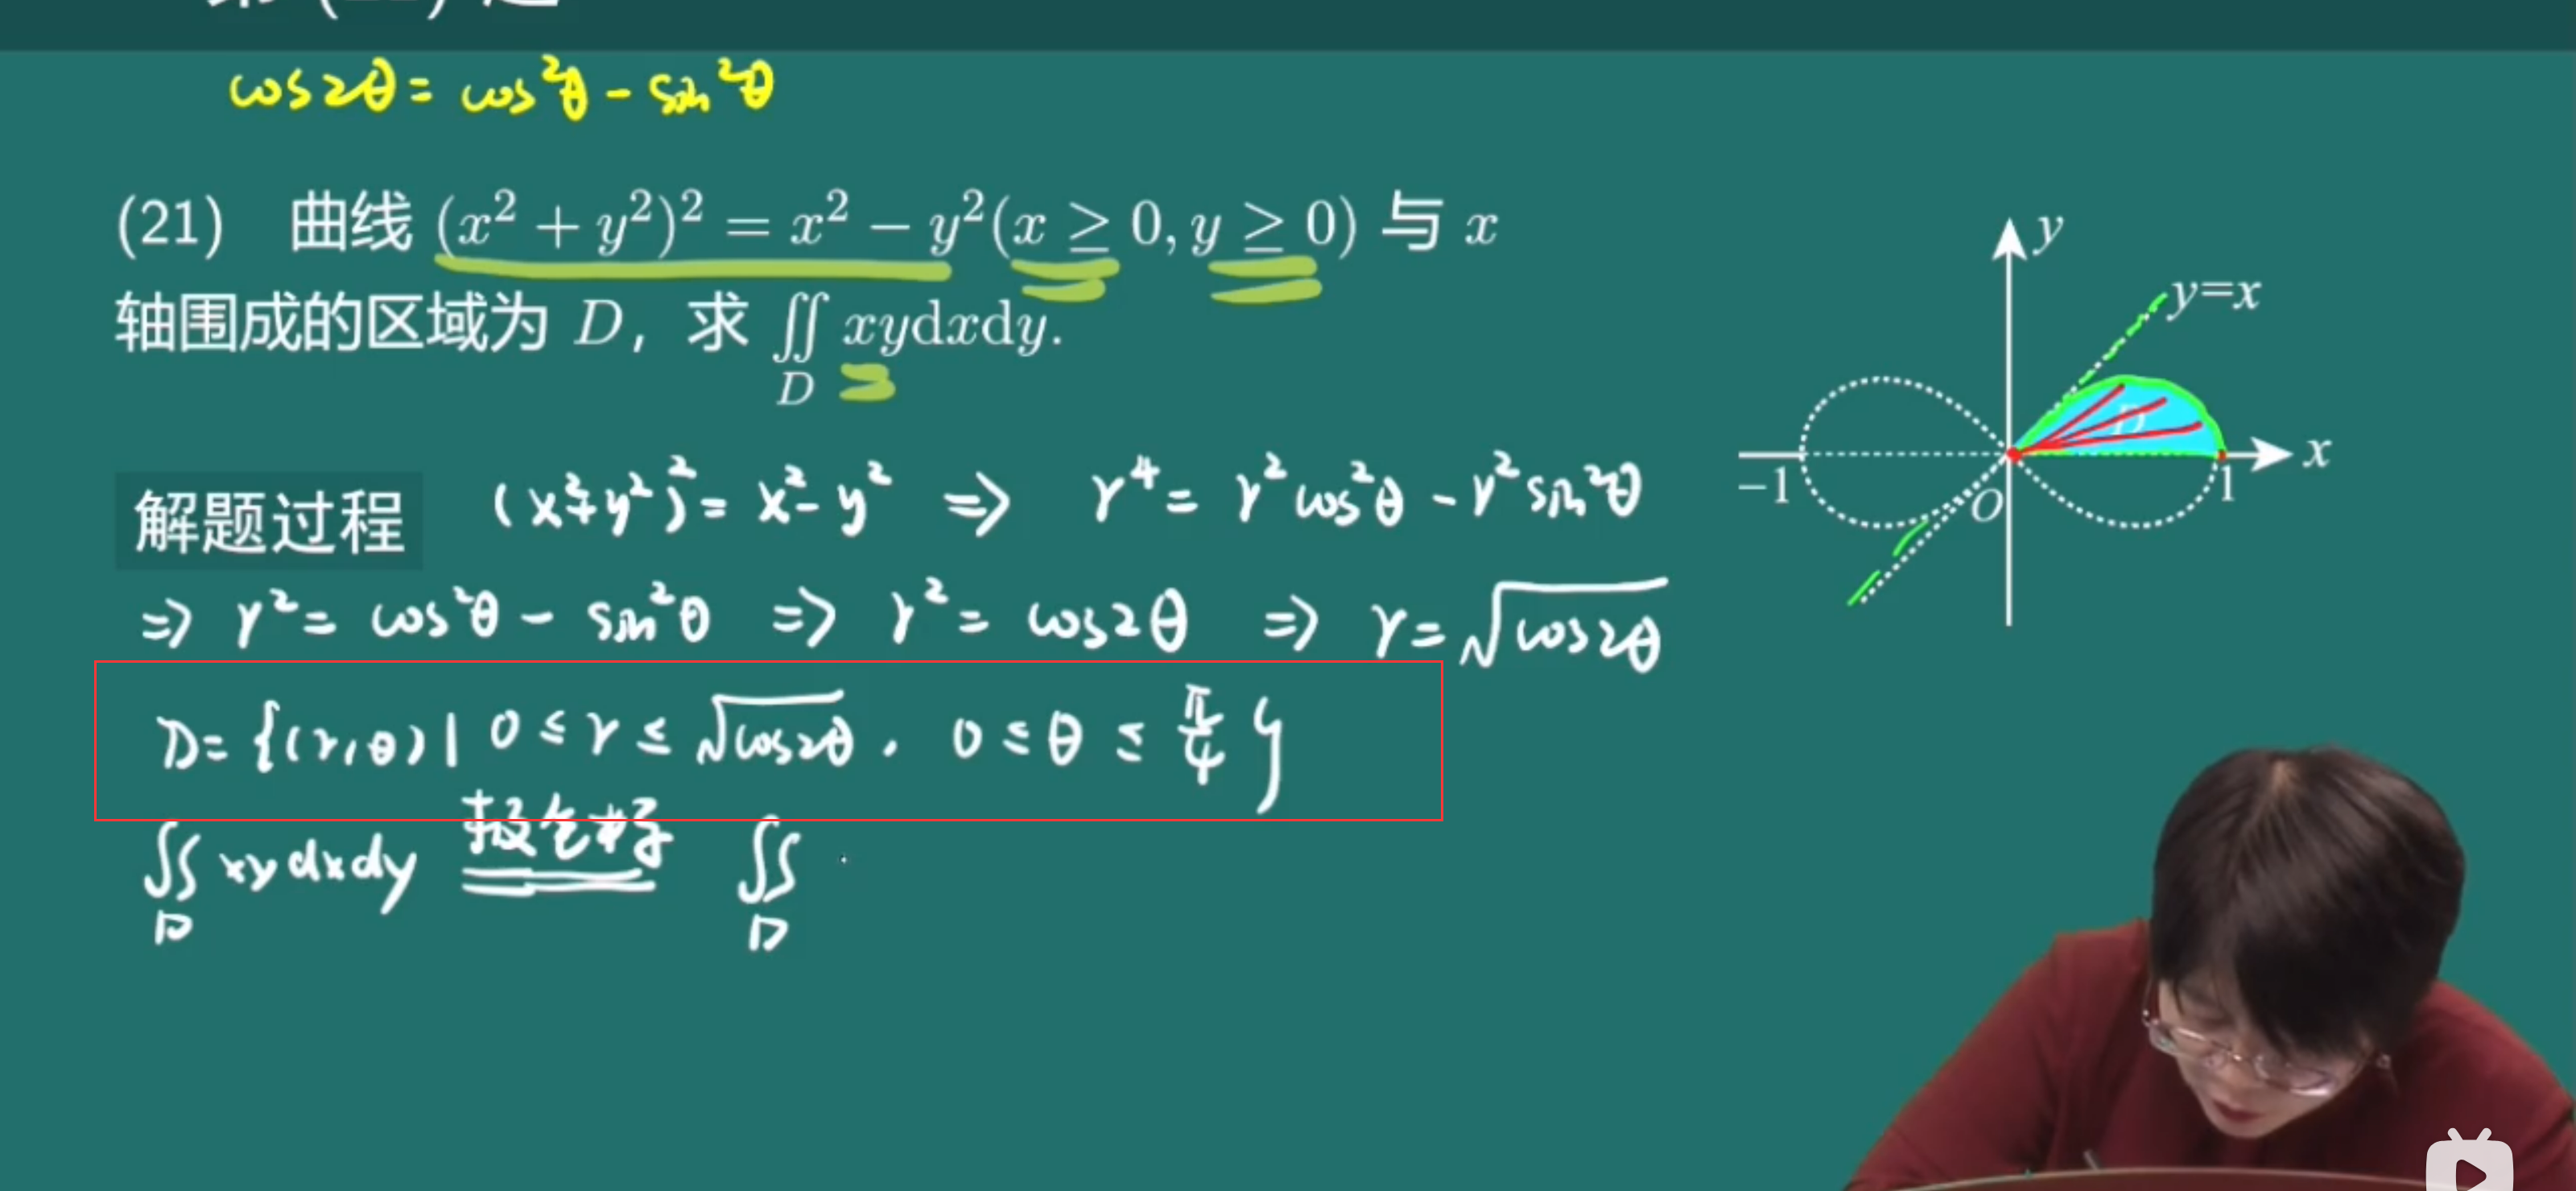 cos2θ = cos²θ - sin²θ
(21) 曲线 (x² + y²)² = x² − y²(x ≥ 0, y ≥ 0) 与 x
轴围成的区域为 D，求 ∬_D xydxdy.
y
y=x
D
x
−1
O
1
解题过程 (x²+y²)² = x²-y² ⇒ r⁴ = r²cos²θ - r²sin²θ
⇒ r² = cos²θ - sin²θ ⇒ r² = cos2θ ⇒ r = √cos2θ
D = {(r,θ) | 0 ≤ r ≤ √cos2θ, 0 ≤ θ ≤ π/4}
∬_D xy dxdy 极坐标 ∬_D